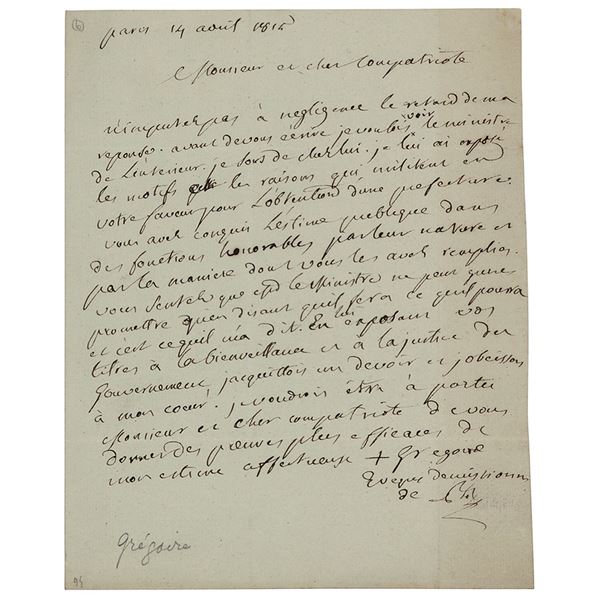 6
paris 14 avril 1815
Monsieur et cher Compatriote
n'imputez pas à négligence le retard de ma
reponse. avant de vous écrire je voulois voir le ministre
de l'interieur. je sors de chez lui. je lui ai exposé
les motifs les raisons qui militent en
votre faveur pour l'obtention d'une prefecture.
vous avez conquis l'estime publique dans
des fonctions honorables par leur nature et
par la maniere dont vous les avez remplies.
vous sentez que le Ministre ne peut guères
promettre qu'en disant qu'il fera ce qu'il pourra
et c'est ce qu'il m'a dit. En lui exposant vos
titres à la bienveillance et à la justice du
Gouvernement j'acquittois un devoir et j'obeissois
à mon coeur. je voudrois être à portée
Monsieur et cher compatriote de vous
donner des preuves plus efficaces de
mon estime affectueuse + Gregoire
Eveque demissionn
de
Grégoire